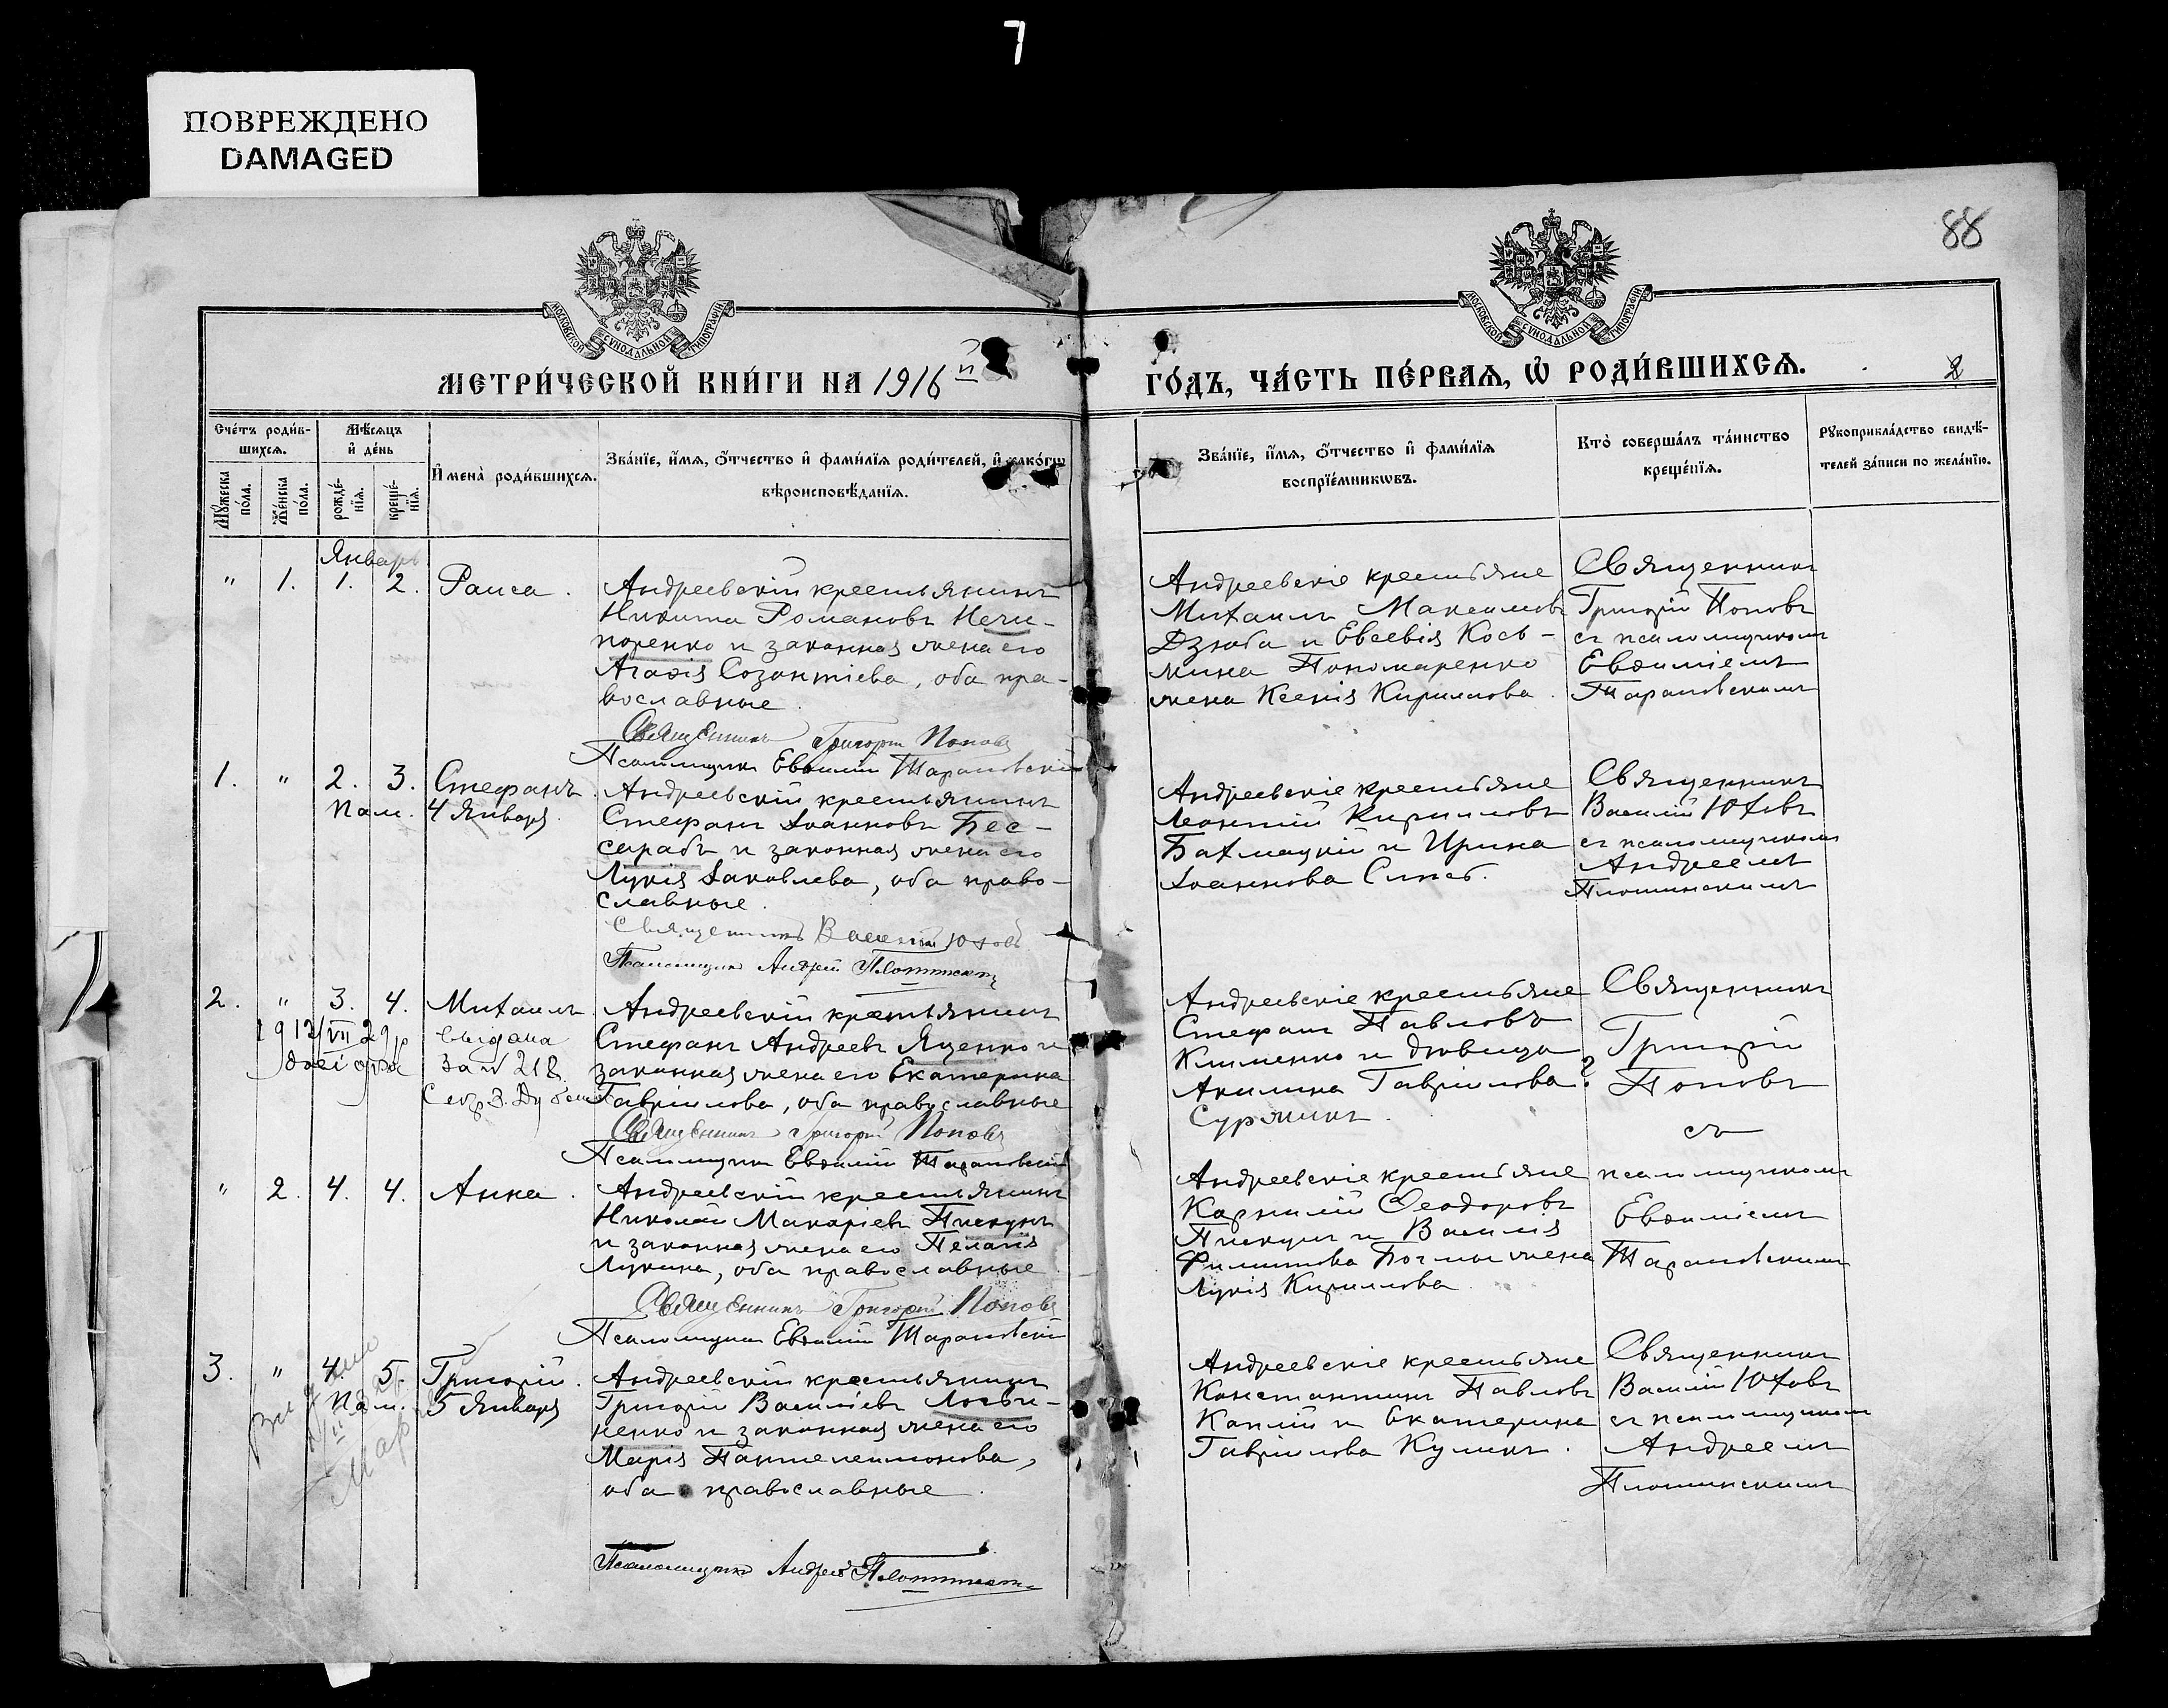 7
ПОВРЕЖДЕНО
DAMAGED
88
МОСКОВСКОЙ СѴНОДАЛЬНОЙ ТИПОГРАФІИ
МОСКОВСКОЙ СѴНОДАЛЬНОЙ ТИПОГРАФІИ
МЕТРИ́ЧЕСКОЙ КНИ́ГИ НА 1916 й
ГО́ДЪ, ЧА́СТЬ ПЕ́РВАЯ, Ѡ҆ РОДИ́ВШИХСЯ.
2
Сче́тъ роди́в-
шихся.
Мꙋ́жеска по́ла.
Же́нска по́ла.
Мѣ́сяцъ и҆ де́нь
рожде́-
нїя.
креще́-
нїя.
И҆мена̀ роди́вшихся.
Зва́нїе, и҆́мя, ѻ҆́тчество и҆ фами́лїя роди́телей, и҆ како́гѡ
вѣроисповѣ́данїя.
Зва́нїе, и҆́мя, ѻ҆́тчество и҆ фами́лїя
воспрїе́мникѡвъ.
Кто̀ соверша́лъ та́инство
креще́нїя.
Рꙋкоприкла́дство свидѣ́-
телей за́писи по жела́нїю.
Январь
" 1. 1. 2. Раиса.
Андреевскій крестьянинъ
Никита Романовъ Нечи-
поренко и законная жена его
Агаѳія Созонтіева, оба пра-
вославные.
Священникъ Григорій Поповъ
Псаломщикъ Евѳимій Тарановскій
Андреевскіе крестьяне
Михаилъ Максимовъ
Дзюба и Евсевія Кось-
мина Пономаренко
жена Ксенія Кириллова.
Священникъ
Григорій Поповъ
съ псаломщикомъ
Евѳиміемъ
Тарановскимъ
1. " 2. 3. Стефанъ.
Пам. 4 Января.
Андреевскій крестьянинъ
Стефанъ Іоанновъ Бес-
сарабъ и законная жена его
Лукія Іаковлева, оба право-
славные.
Священникъ Василій Юховъ
Псаломщикъ Андрей Плотинскій
Андреевскіе крестьяне
Леонтій Кирилловъ
Бахмацкій и Ирина
Іоаннова
Священникъ
Василій Юховъ
съ псаломщикомъ
Андреемъ
Плотинскимъ
2. " 3. 4. Михаилъ.
выдана
за № 218
Андреевскій крестьянинъ
Стефанъ Андреевъ Яценко и
законная жена его Екатерина
Гавріилова, оба православные
Священникъ Григорій Поповъ
Псаломщикъ Евѳимій Тарановскій
Андреевскіе крестьяне
Стефанъ Павловъ
Клименко и дѣвица
Акилина Гавріилова
Суржикъ.
Священникъ
Григорій
Поповъ
съ
псаломщикомъ
Евѳиміемъ
Тарановскимъ
" 2. 4. 4. Анна.
Андреевскій крестьянинъ
Николай Макаріевъ Пискунъ
и законная жена его Пелагія
Лукина, оба православные
Священникъ Григорій Поповъ
Псаломщикъ Евѳимій Тарановскій
Андреевскіе крестьяне
Карпилій Ѳеодоровъ
Пискунъ и Василія
Филиппова жена
Лукія Кириллова.
3. " 4. 5. Григорій.
Пам. 5 Января
Андреевскій крестьянинъ
Григорій Василіевъ Логви-
ненко и законная жена его
Марія Пантелеимонова,
оба православные.
Псаломщикъ Андрей Плотинскій
Андреевскіе крестьяне
Константинъ Павловъ
Каплій и Екатерина
Гавріилова Куликъ.
Священникъ
Василій Юховъ
съ псаломщикомъ
Андреемъ
Плотинскимъ